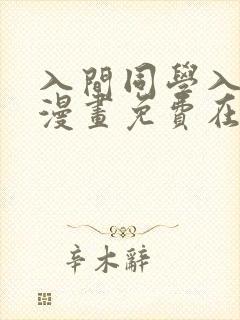 入間同學入
漫畫免費在
辛木辭